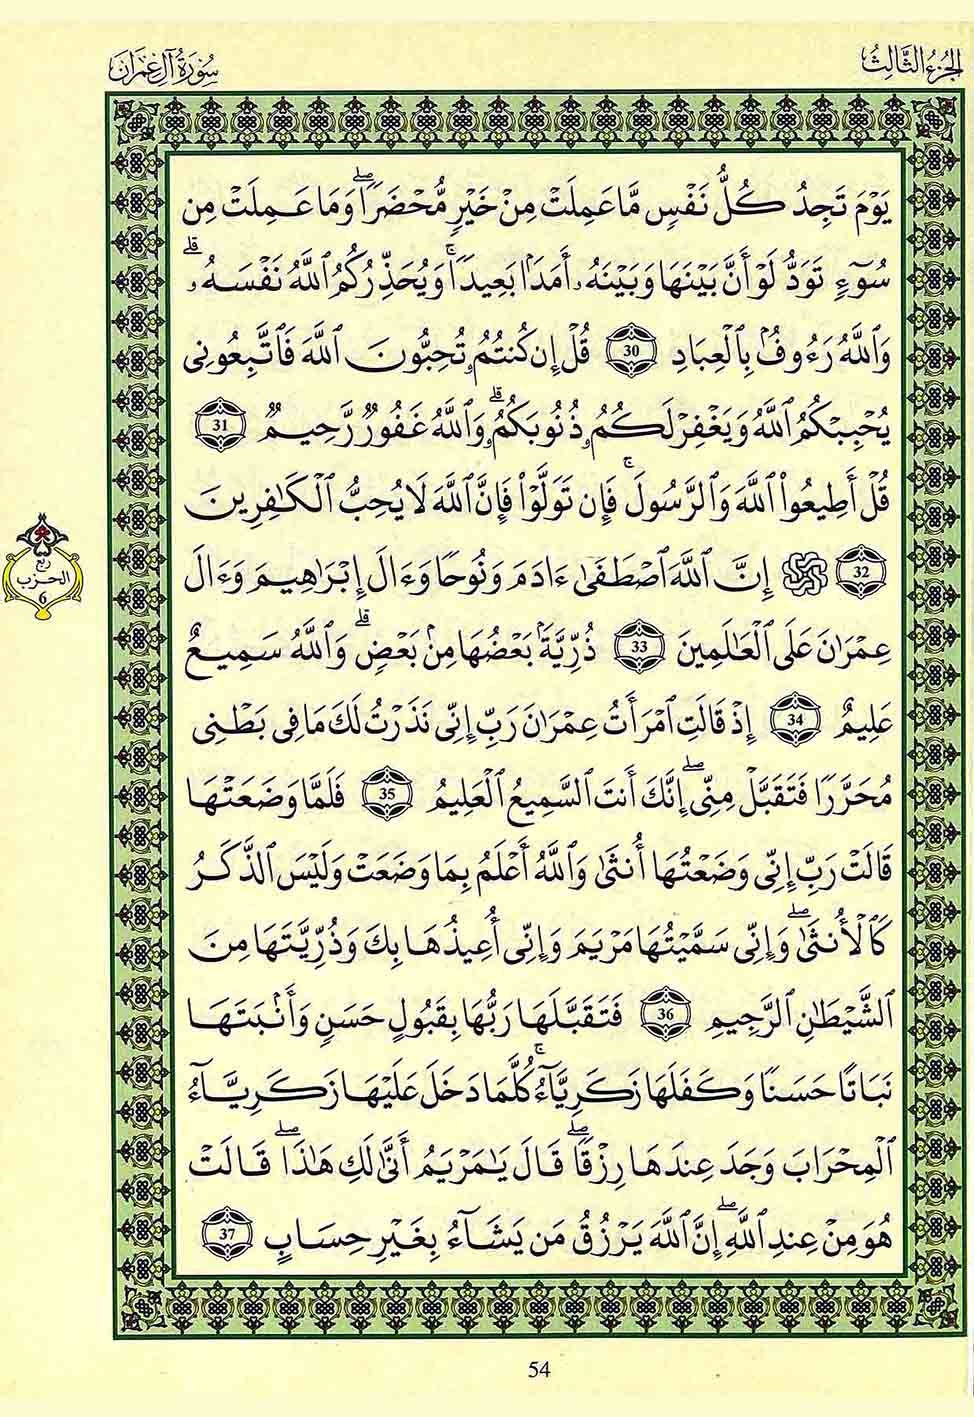 الجُزْءُ الثَّالِثُ
سُورَةُ آلِ عِمْرَانَ
يَوْمَ تَجِدُ كُلُّ نَفْسٍ مَّا عَمِلَتْ مِنْ خَيْرٍ مُّحْضَرًاۖ وَمَا عَمِلَتْ مِن
سُوٓءٍ تَوَدُّ لَوْ أَنَّ بَيْنَهَا وَبَيْنَهُۥ أَمَدًۢا بَعِيدًاۚ وَيُحَذِّرُكُمُ ٱللَّهُ نَفْسَهُۥۗ
وَٱللَّهُ رَءُوفُۢ بِٱلْعِبَادِ 30 قُلْ إِن كُنتُمُۥ تُحِبُّونَ ٱللَّهَ فَٱتَّبِعُونِى
يُحْبِبْكُمُ ٱللَّهُ وَيَغْفِرْ لَكُمُۥ ذُنُوبَكُمُۥۗ وَٱللَّهُ غَفُورٌ رَّحِيمٌ 31
قُلْ أَطِيعُوا۟ ٱللَّهَ وَٱلرَّسُولَۚ فَإِن تَوَلَّوْا۟ فَإِنَّ ٱللَّهَ لَا يُحِبُّ ٱلْكَٰفِرِينَ
32 إِنَّ ٱللَّهَ ٱصْطَفَىٰ ءَادَمَ وَنُوحًا وَءَالَ إِبْرَٰهِيمَ وَءَالَ
رُبع
الحزب
6
عِمْرَٰنَ عَلَى ٱلْعَٰلَمِينَ 33 ذُرِّيَّةَۢ بَعْضُهَا مِنۢ بَعْضٍۗ وَٱللَّهُ سَمِيعٌ
عَلِيمٌ 34 إِذْ قَالَتِ ٱمْرَأَتُ عِمْرَٰنَ رَبِّ إِنِّى نَذَرْتُ لَكَ مَا فِى بَطْنِى
مُحَرَّرًا فَتَقَبَّلْ مِنِّىۖ إِنَّكَ أَنتَ ٱلسَّمِيعُ ٱلْعَلِيمُ 35 فَلَمَّا وَضَعَتْهَا
قَالَتْ رَبِّ إِنِّى وَضَعْتُهَا أُنثَىٰ وَٱللَّهُ أَعْلَمُ بِمَا وَضَعَتْ وَلَيْسَ ٱلذَّكَرُ
كَٱلْأُنثَىٰۖ وَإِنِّى سَمَّيْتُهَا مَرْيَمَ وَإِنِّى أُعِيذُهَا بِكَ وَذُرِّيَّتَهَا مِنَ
ٱلشَّيْطَٰنِ ٱلرَّجِيمِ 36 فَتَقَبَّلَهَا رَبُّهَا بِقَبُولٍ حَسَنٍ وَأَنۢبَتَهَا
نَبَاتًا حَسَنًا وَكَفَلَهَا زَكَرِيَّآءُۚ كُلَّمَا دَخَلَ عَلَيْهَا زَكَرِيَّآءُ
ٱلْمِحْرَابَ وَجَدَ عِندَهَا رِزْقًاۖ قَالَ يَٰمَرْيَمُ أَنَّىٰ لَكِ هَٰذَاۖ قَالَتْ
هُوَ مِنْ عِندِ ٱللَّهِۖ إِنَّ ٱللَّهَ يَرْزُقُ مَن يَشَآءُ بِغَيْرِ حِسَابٍ 37
54